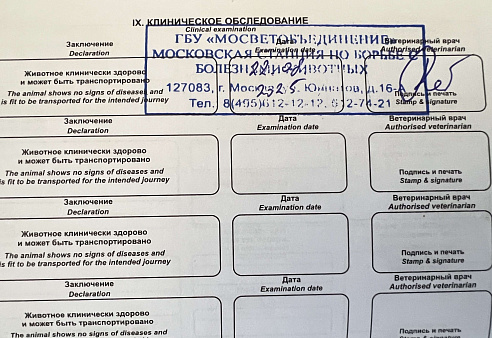 IX. КЛИНИЧЕСКОЕ ОБСЛЕДОВАНИЕ
Clinical examination
ГБУ «МОСВЕТОБЪЕДИНЕНИЕ»
МОСКОВСКАЯ СТАНЦИЯ ПО БОРЬБЕ С
БОЛЕЗНЯМИ ЖИВОТНЫХ
127083, г. Москва, ул. Юннатов, д.16-А
Тел. 8(495)612-12-12, 612-74-21
Заключение
Declaration
Дата
Examination date
Ветеринарный врач
Authorised veterinarian
Животное клинически здорово
и может быть транспортировано
The animal shows no signs of diseases and
is fit to be transported for the intended journey
Подпись и печать
Stamp & signature
Заключение
Declaration
Дата
Examination date
Ветеринарный врач
Authorised veterinarian
Животное клинически здорово
и может быть транспортировано
The animal shows no signs of diseases and
is fit to be transported for the intended journey
Подпись и печать
Stamp & signature
Заключение
Declaration
Дата
Examination date
Ветеринарный врач
Authorised veterinarian
Животное клинически здорово
и может быть транспортировано
The animal shows no signs of diseases and
is fit to be transported for the intended journey
Подпись и печать
Stamp & signature
Заключение
Declaration
Дата
Examination date
Ветеринарный врач
Authorised veterinarian
Животное клинически здорово
и может быть транспортировано
The animal shows no signs of diseases and
Подпись и печать